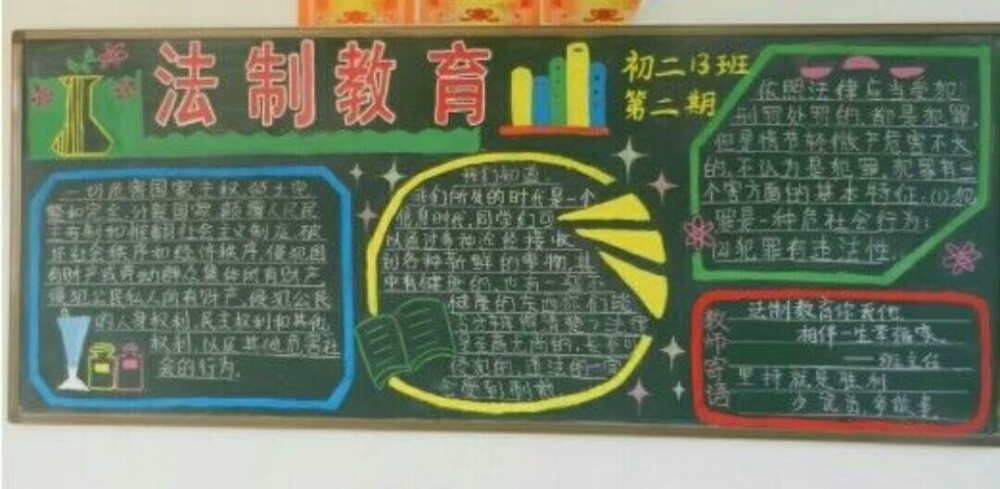 法制教育
初二13班
第二期
一切危害国家主权、领土完
整和安全,分裂国家、颠覆人民民
主专制和推翻社会主义制度,破
坏社会秩序和经济秩序,侵犯国
有财产或劳动群众集体所有财产
侵犯公民私人所有财产,侵犯公民
的人身权利,民主权利和其他
权利,以及其他危害社
会的行为,
我们知道,
我们所处的时代是一个
信息时代,同学们可
以通过多种途径接收
到各种新鲜的事物,其
中有健康的,也有一些不
健康的东西
受到制裁
依照法律应当受犯
刑罚处罚的,都是犯罪,
但是情节轻微产危害不大
的,不认为是犯罪,犯罪有三
个害方面的基本特征:(1)犯
罪是一种危社会行为;
(2)犯罪有违法性.
教师寄语
法制教育你我他,
相伴一生幸福
——班主任
坚持就是胜利
少说为,多做事,